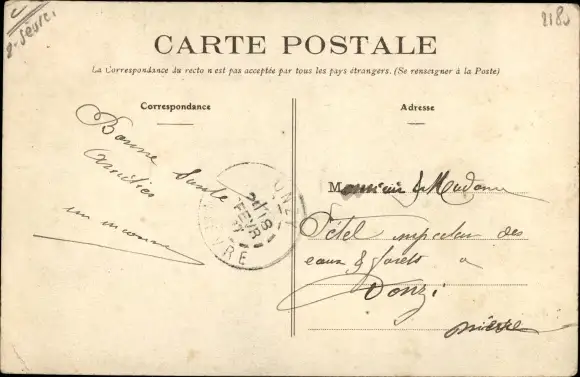 2-Sèvres
2180
CARTE POSTALE
La Correspondance du recto n'est pas acceptée par tous les pays étrangers. (Se renseigner à la Poste)
Correspondance
Adresse
Bonne Santé
Amitiés
un inconnu
DONZY
24
18
FEVR
NIEVRE
Monsieur & Madame
Pétel inspecteur des
eaux & forêts a
Donzi
nièvre